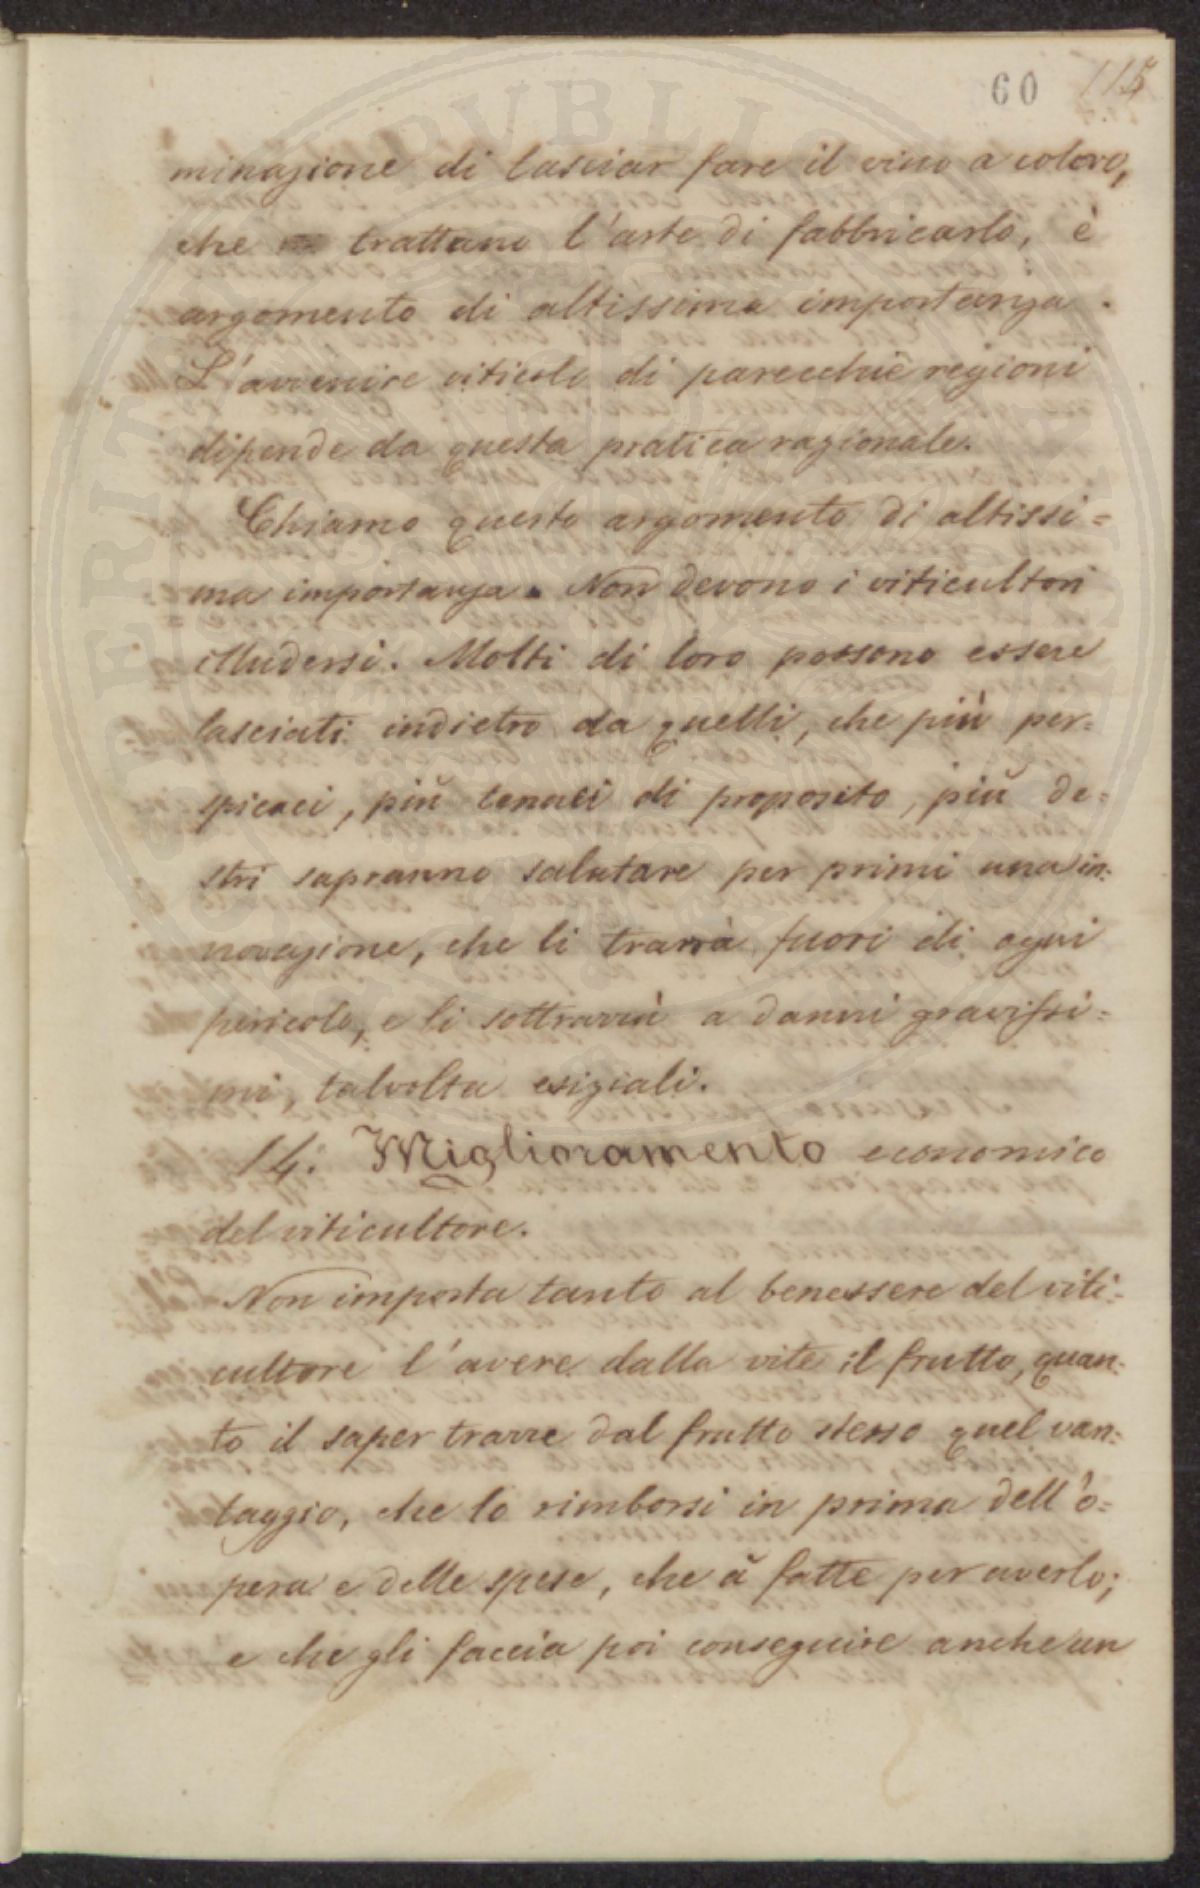 60 115
minazione di lasciar fare il vino a coloro,
che trattano l'arte di fabbricarlo, è
argomento di altissima importanza.
L'avvenire viticolo di parecchie regioni
dipende da questa pratica razionale.
Chiamo questo argomento di altissi=
ma importanza. Non devono i viticultori
illudersi. Molti di loro possono essere
lasciati indietro da quelli, che più per=
spicaci, più tenaci di proposito, più de=
stri sapranno salutare per primi una in=
novazione, che li trarrà fuori di ogni
pericolo, e li sottrarrà a danni gravissi=
mi, talvolta esiziali.
14. Miglioramento economico
del viticultore.
Non importa tanto al benessere del viti=
cultore l'avere dalla vite il frutto, quan=
to il saper trarre dal frutto stesso quel van=
taggio, che lo rimborsi in prima dell'o=
pera e delle spese, che à fatte per averlo;
e che gli faccia poi conseguire anche un